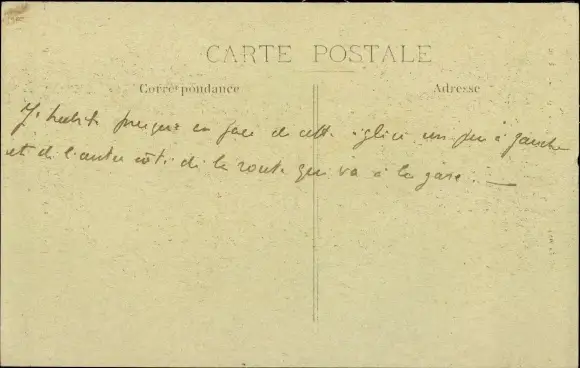 CARTE POSTALE
Correspondance
Adresse
J'habite presque en face de cette église un peu à gauche
et de l'autre côté de la route qui va à la gare. —